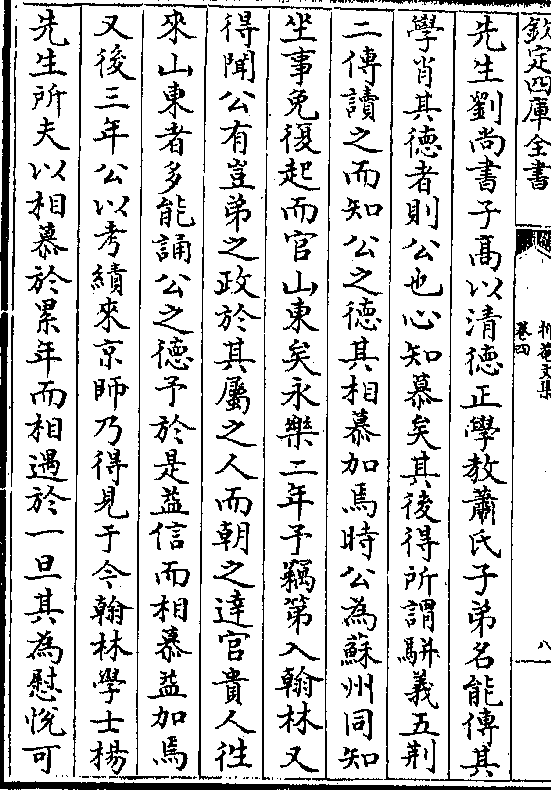 欽定四庫全書
卷四
八
先生劉尚書子高以清德正學教蕭氏子弟名能傳其
學肖其德者則公也心知慕矣其後得所謂騈義五荆
二傳讀之而知公之德其相慕加焉時公為蘇州同知
坐事免復起而官山東矣永樂二年予竊第入翰林又
得聞公有豈弟之政於其屬之人而朝之達官貴人徃
來山東者多能誦公之德予於是益信而相慕益加焉
又後三年公以考績來京師乃得見于今翰林學士楊
先生所夫以相慕於累年而相遇於一旦其為慰悅可